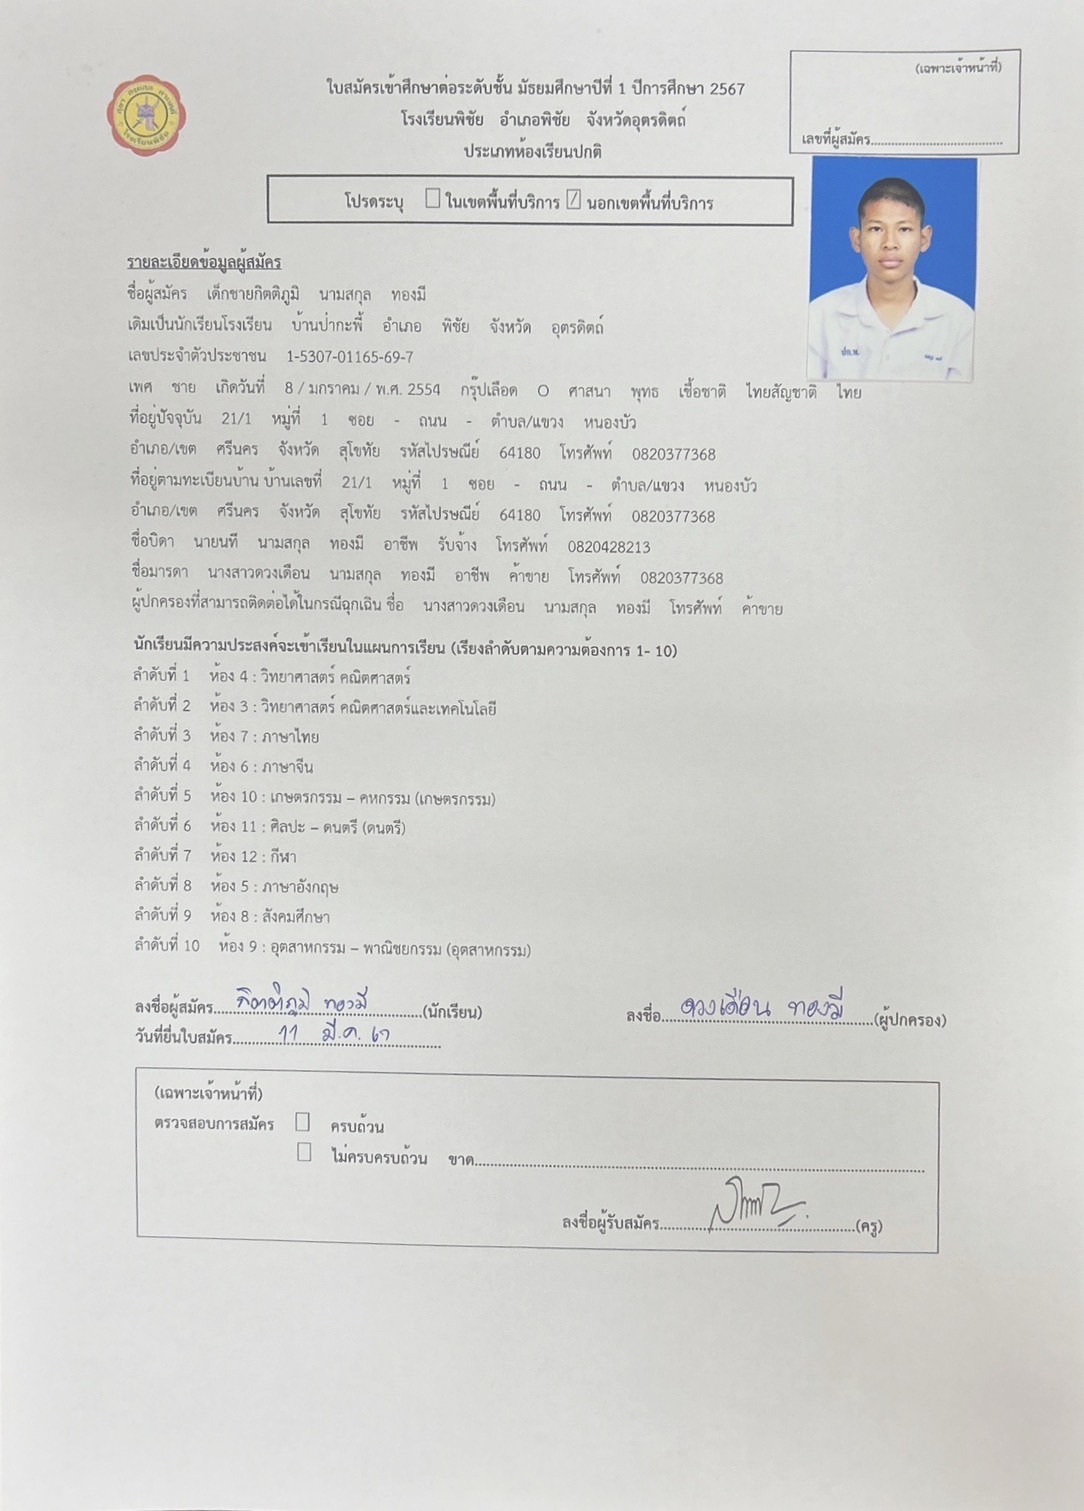 (เฉพาะเจ้าหน้าที่)
เลขที่ผู้สมัคร......................................
ใบสมัครเข้าศึกษาต่อระดับชั้น มัธยมศึกษาปีที่ 1 ปีการศึกษา 2567
โรงเรียนพิชัย อำเภอพิชัย จังหวัดอุตรดิตถ์
ประเภทห้องเรียนปกติ
โปรดระบุ ☐ ในเขตพื้นที่บริการ ☑ นอกเขตพื้นที่บริการ
รายละเอียดข้อมูลผู้สมัคร
ชื่อผู้สมัคร เด็กชายกิตติภูมิ นามสกุล ทองมี
เดิมเป็นนักเรียนโรงเรียน บ้านป่ากะพี้ อำเภอ พิชัย จังหวัด อุตรดิตถ์
เลขประจำตัวประชาชน 1-5307-01165-69-7
เพศ ชาย เกิดวันที่ 8 / มกราคม / พ.ศ. 2554 กรุ๊ปเลือด O ศาสนา พุทธ เชื้อชาติ ไทยสัญชาติ ไทย
ที่อยู่ปัจจุบัน 21/1 หมู่ที่ 1 ซอย - ถนน - ตำบล/แขวง หนองบัว
อำเภอ/เขต ศรีนคร จังหวัด สุโขทัย รหัสไปรษณีย์ 64180 โทรศัพท์ 0820377368
ที่อยู่ตามทะเบียนบ้าน บ้านเลขที่ 21/1 หมู่ที่ 1 ซอย - ถนน - ตำบล/แขวง หนองบัว
อำเภอ/เขต ศรีนคร จังหวัด สุโขทัย รหัสไปรษณีย์ 64180 โทรศัพท์ 0820377368
ชื่อบิดา นายนที นามสกุล ทองมี อาชีพ รับจ้าง โทรศัพท์ 0820428213
ชื่อมารดา นางสาวดวงเดือน นามสกุล ทองมี อาชีพ ค้าขาย โทรศัพท์ 0820377368
ผู้ปกครองที่สามารถติดต่อได้ในกรณีฉุกเฉิน ชื่อ นางสาวดวงเดือน นามสกุล ทองมี โทรศัพท์ ค้าขาย
นักเรียนมีความประสงค์จะเข้าเรียนในแผนการเรียน (เรียงลำดับตามความต้องการ 1- 10)
ลำดับที่ 1 ห้อง 4 : วิทยาศาสตร์ คณิตศาสตร์
ลำดับที่ 2 ห้อง 3 : วิทยาศาสตร์ คณิตศาสตร์และเทคโนโลยี
ลำดับที่ 3 ห้อง 7 : ภาษาไทย
ลำดับที่ 4 ห้อง 6 : ภาษาจีน
ลำดับที่ 5 ห้อง 10 : เกษตรกรรม – คหกรรม (เกษตรกรรม)
ลำดับที่ 6 ห้อง 11 : ศิลปะ – ดนตรี (ดนตรี)
ลำดับที่ 7 ห้อง 12 : กีฬา
ลำดับที่ 8 ห้อง 5 : ภาษาอังกฤษ
ลำดับที่ 9 ห้อง 8 : สังคมศึกษา
ลำดับที่ 10 ห้อง 9 : อุตสาหกรรม – พาณิชยกรรม (อุตสาหกรรม)
ลงชื่อผู้สมัคร กิตติภูมิ ทองมี (นักเรียน) ลงชื่อ ดวงเดือน ทองมี (ผู้ปกครอง)
วันที่ยื่นใบสมัคร 11 มี.ค. 67
(เฉพาะเจ้าหน้าที่)
ตรวจสอบการสมัคร ☐ ครบถ้วน
☐ ไม่ครบครบถ้วน ขาด......................................
ลงชื่อผู้รับสมัคร......................................(ครู)